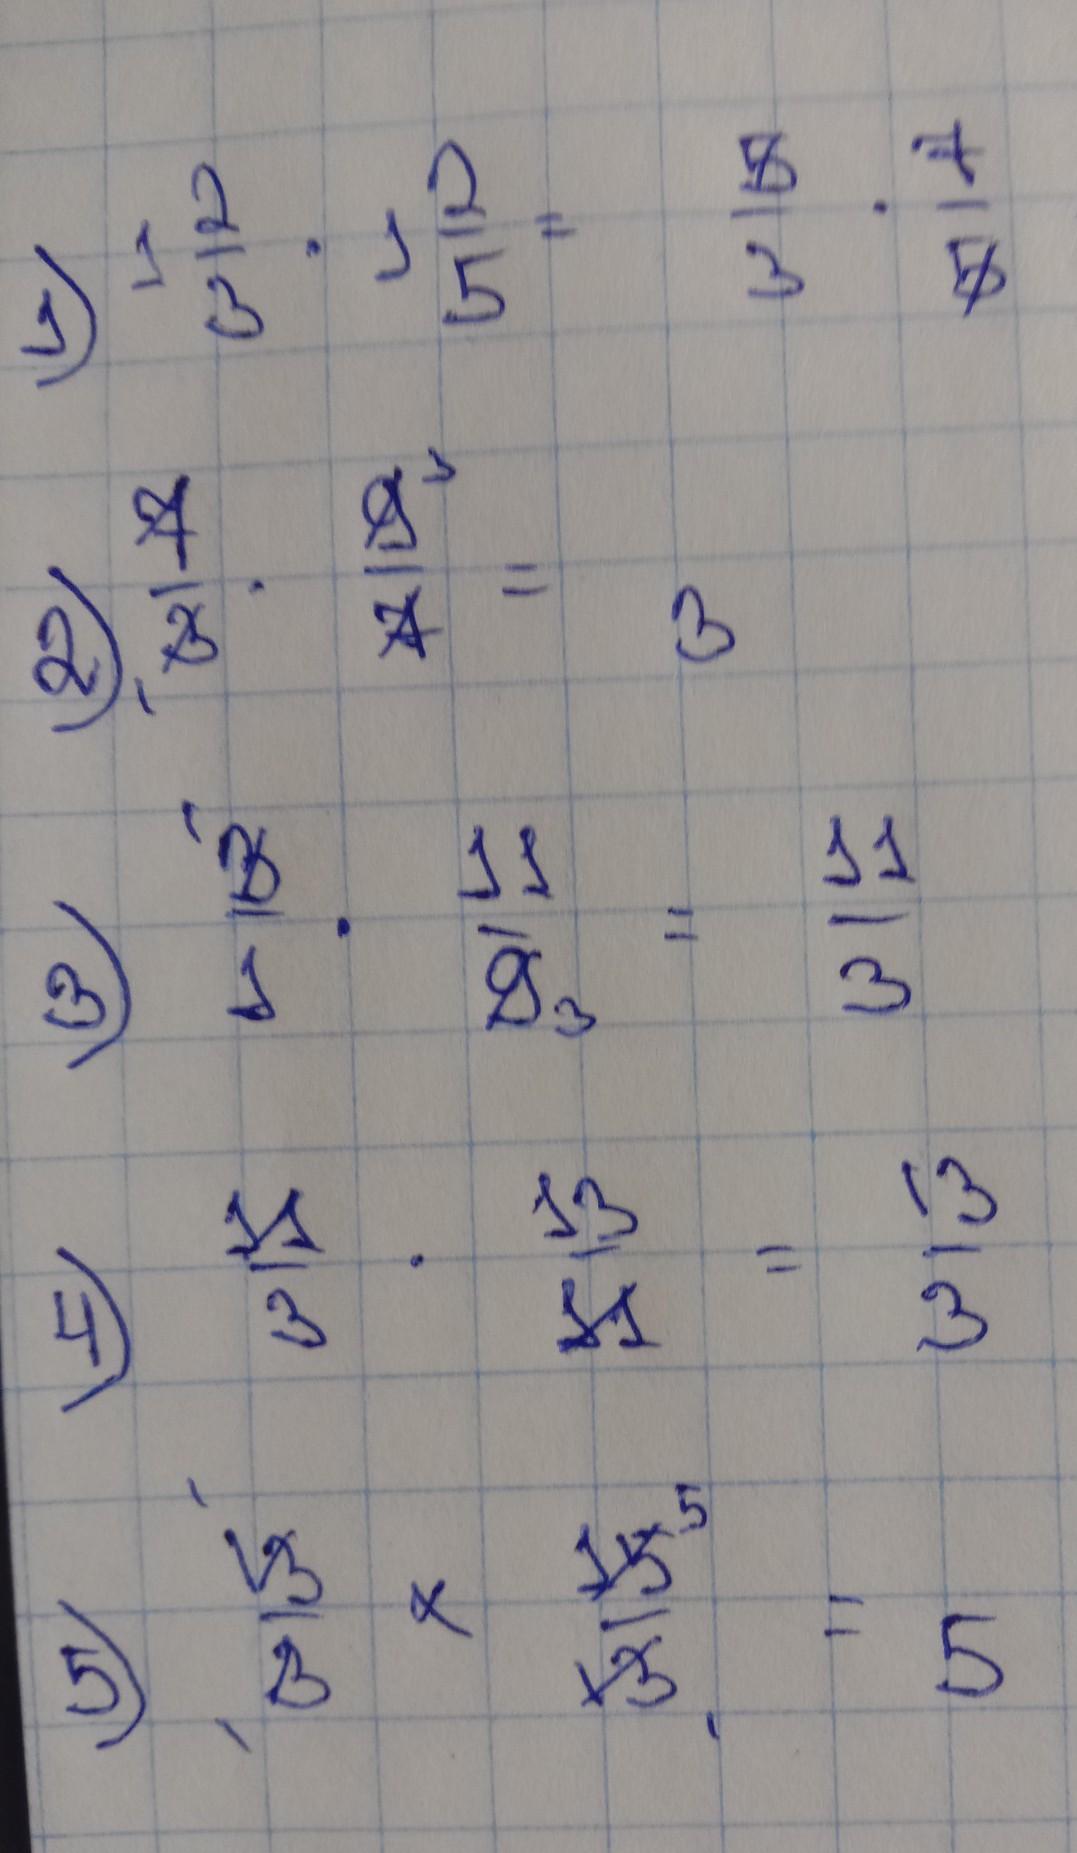 1) 1 2/3 · 1 2/5 = 5/3 · 7/5
2) 7/3 · 9/7 = 3
3) 3/1 · 11/9 = 11/3
4) 11/3 · 13/11 = 13/3
5) 13/3 × 15/13 = 5